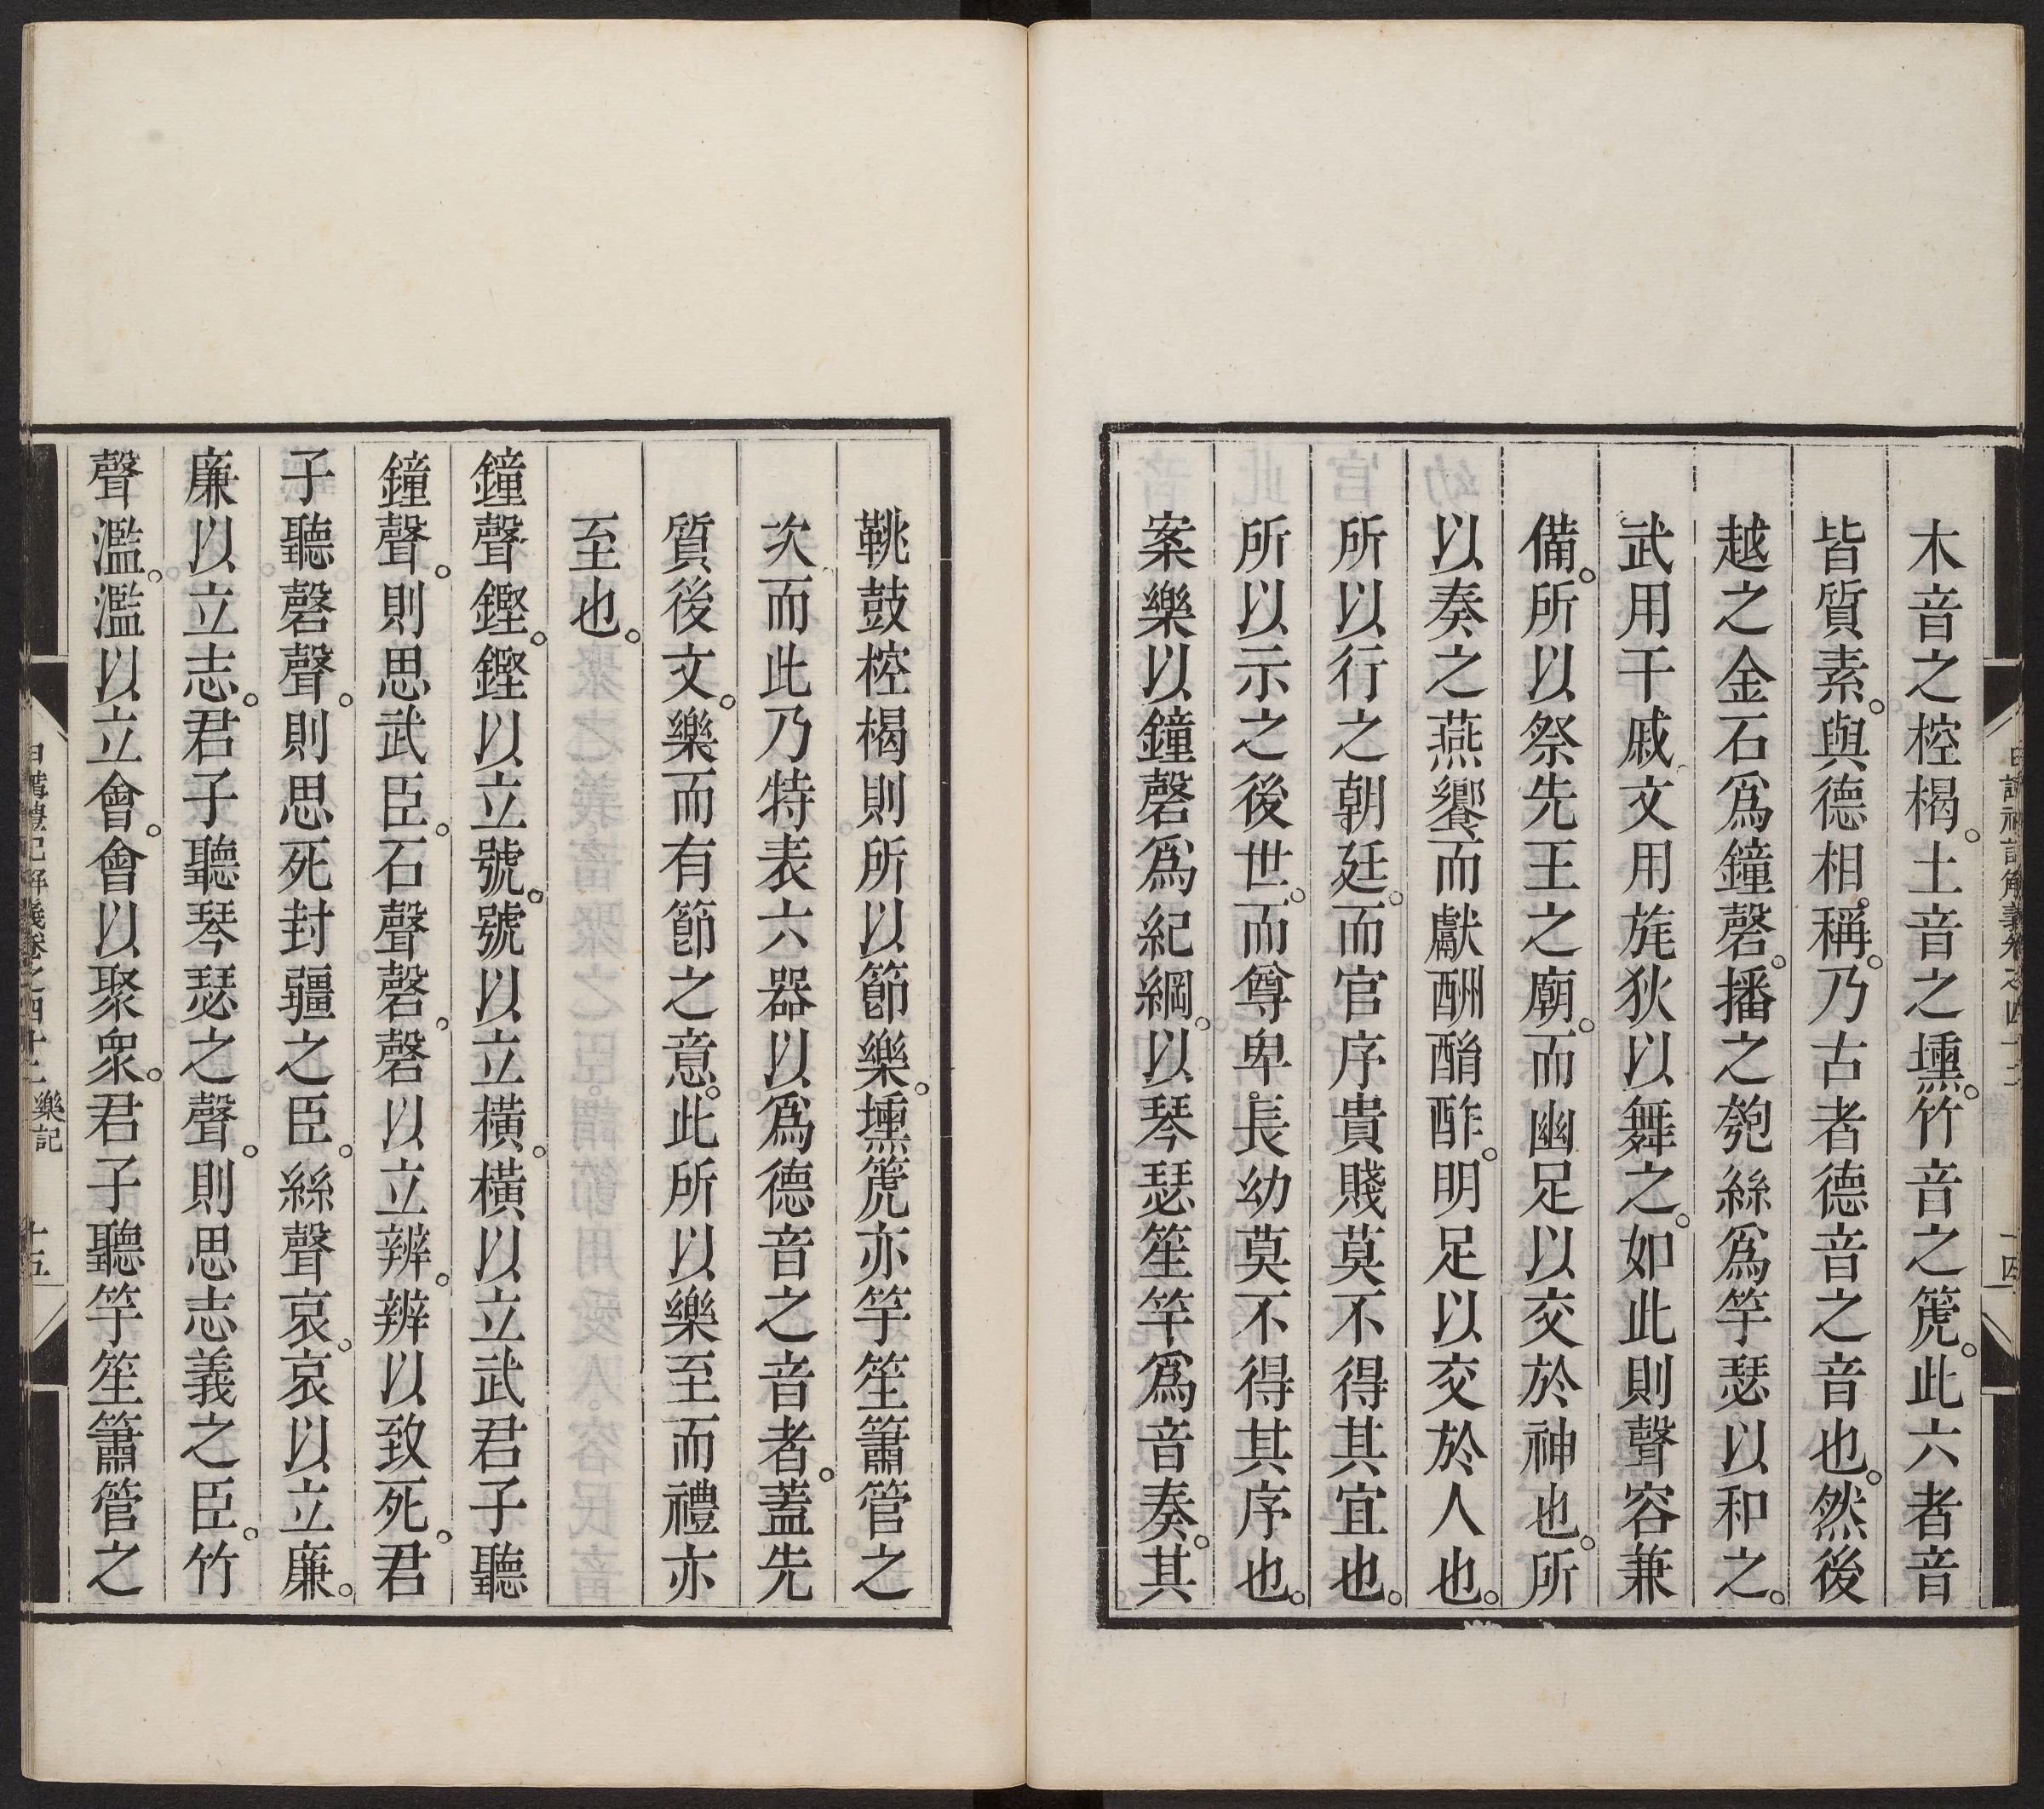 木音之椌楬。土音之壎。竹音之篪。此六者音
皆質素。與德相稱。乃古者德音之音也。然後
越之金石爲鐘磬。播之匏絲爲竽瑟以和之。
武用干戚文用旄狄以舞之。如此則聲容兼
備。所以祭先王之廟。而幽足以交於神也。所
以奏之燕饗而獻酬酳酢。明足以交於人也。
所以行之朝廷。而官序貴賤莫不得其宜也。
所以示之後世。而尊卑長幼莫不得其序也。
案樂以鐘磬爲紀綱。以琴瑟笙竽爲音奏。其
鞉鼓椌楬則所以節樂。壎篪亦竽笙簫管之
次而此乃特表六器以爲德音之音者。蓋先
質後文。樂而有節之意。此所以樂至而禮亦
至也。
鐘聲鏗。鏗以立號。號以立橫。橫以立武君子聽
鐘聲。則思武臣。石聲磬。磬以立辨。辨以致死。君
子聽磬聲。則思死封疆之臣。絲聲哀。哀以立廉。
廉以立志。君子聽琴瑟之聲。則思志義之臣。竹
聲濫。濫以立會。會以聚衆。君子聽竽笙簫管之
日講禮記解義卷之四十二 樂記 十五